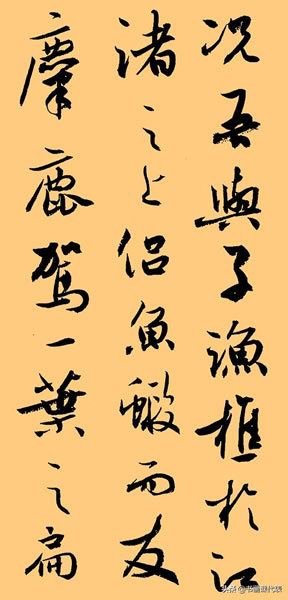 况吾與子漁樵於江
渚之上侣魚蝦而友
麋鹿駕一葉之扁
头条@书画课代表